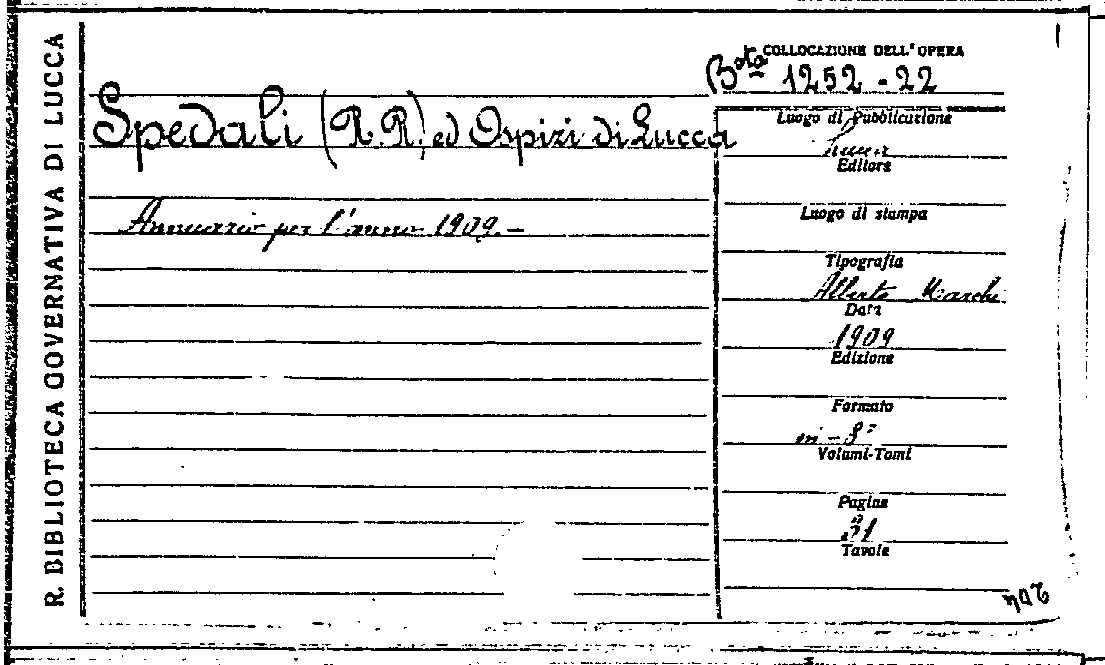 R. BIBLIOTECA GOVERNATIVA DI LUCCA
COLLOCAZIONE DELL'OPERA
Bta 1252-22
Spedali (R.R.) ed Ospizi di Lucca
Annuario per l'anno 1909.-
Luogo di Pubblicazione
Lucca
Editore
Luogo di stampa
Tipografia
Alberto Marchi
Data
1909
Edizione
Formato
in-8°
Volumi-Tomi
Pagine
31
Tavole